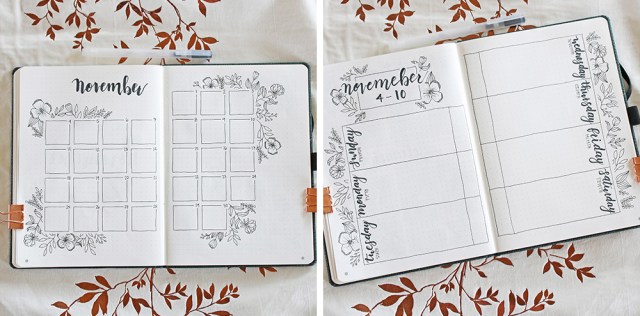 november
novemeber
4-10
sunday
monday
tuesday
wednesday
thursday
friday
saturday